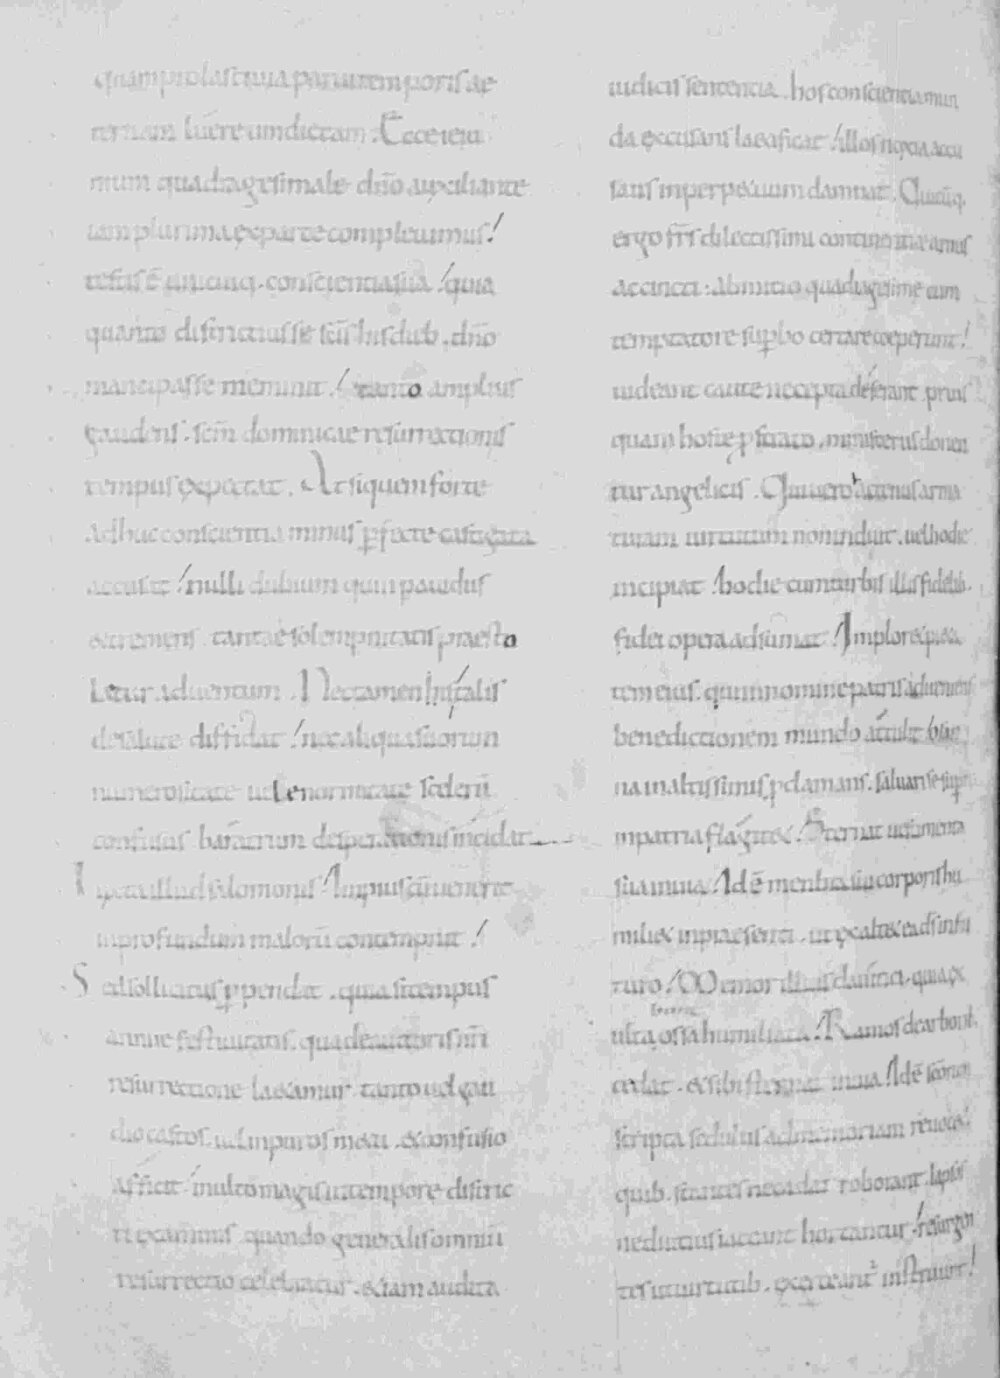 quam pro lasciuia parui temporis ae
ternam luere uindictam. Ecce ieiu
nium quadragesimale dño auxiliante
iam plurima ex parte compleuimus!
testis ē unicuiq. conscientia sua quia
quanto districtius se sc̄is his dieb. dño
mancipasse meminit. tanto amplius
gaudens. sc̄m dominicae resurrectionis
tempus expectat. At si quem forte
adhuc conscientia minus pfecte castigata
accuset nulli dubium quin pauidus
ac tremens tantae solempnitatis praesto
letur aduentum. Nec tamen hic talis
de salute diffidat nec aliqua suorum
numerositate uel enormitate scelerū
confusus baratrum desperationis incidat
Iuxta illud Salomonis Impius cū uenerit
in profundum malorū contempnit!
Sed sollicitus ppendat. quia si tempus
annue festiuitatis. qua de auctoris nr̄i
resurrectione laetamur. tanto uel gau
dio castos. uel inpuros metu. & confusio
afficit multo magis in tempore distric
ti examinis quando generalis omniū
resurrectio celebratur. etiam audita
iudicis sententia. hos conscientia mun
da excusans laetificat illos noxia accu
sans in perpetuum damnat. Quicūq.
ergo fr̄s dilectissimi continentiae armis
accincti. ab initio quadragesime cum
temptatore supbo certare coeperunt!
uideant caute ne coepta deserant. prius
quam hoste pstrato. ministeriis donen
tur angelicis. Qui uero actenus arma
tiuam uirtutum non induit. uel hodie
incipiat hodie cum turbis illis fidelib.
fidei opera adsumat Implor& pieta
tem eius. qui in nomine patris adueniens
benedictionem mundo attulit
na in altissimis pclamans. saluari se sup
in patria flagit&. Sternat uestimenta
sua in uia Id ē membra sui corporis hu
mili& in praesenti. ut exalt&
turo Memor illius dauitici. quia ex
ulta ossa humiliata Ramos de arborib.
cedat. & sibi sternat in uia Id ē sc̄orum
scripta sedulus ad memoriam reuocet
quib. stantes ne cadat roborant. lapsis
ne diutius iaceant hortantur. resurgen
tes ut uirtutib. exerceant instruunt!